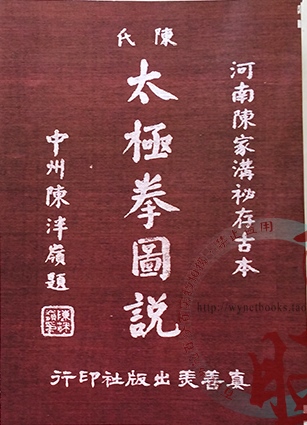 陳氏
太極拳圖説
河南陳家溝祕存古本
中州陳泮嶺題
真善美出版社印行
http://wynctbooks.tao